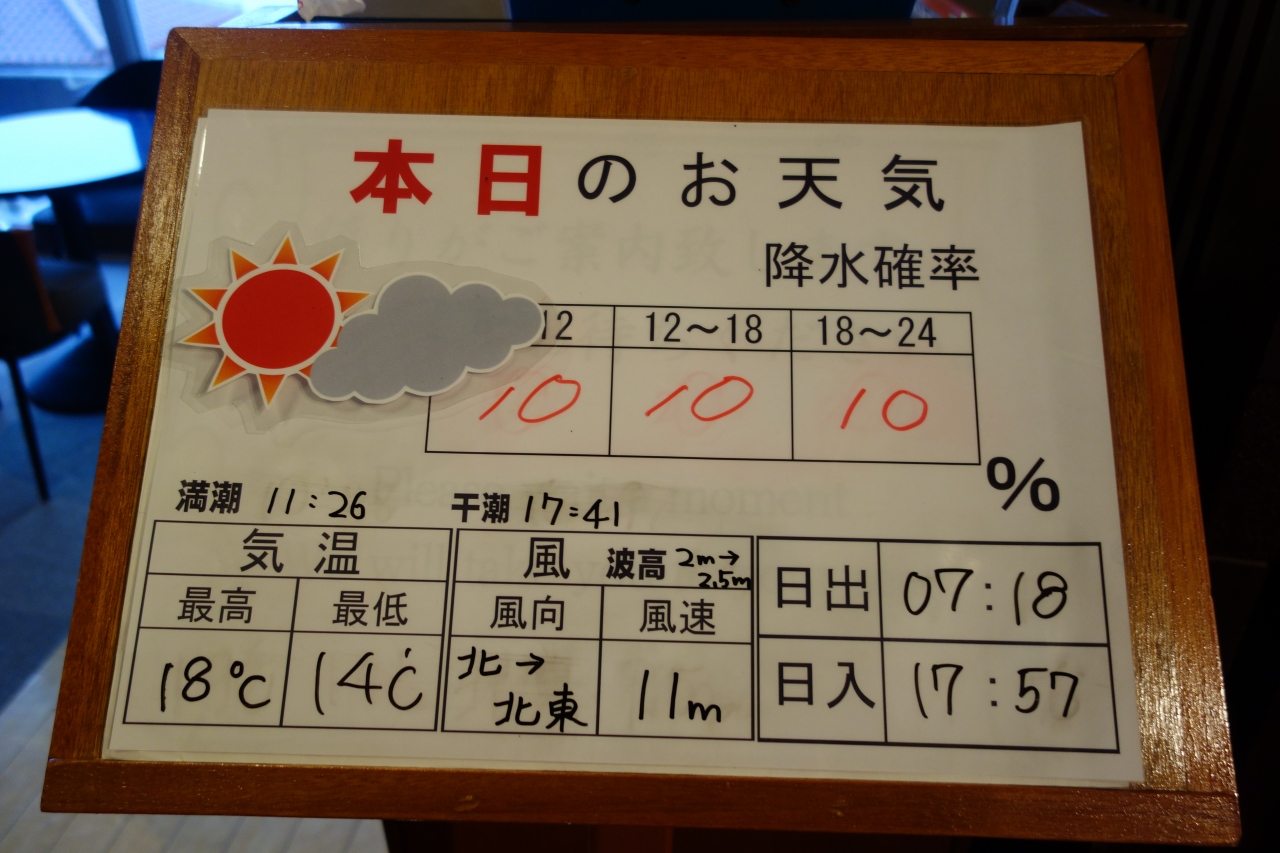 本日のお天気
降水確率
12 12～18 18～24
10 10 10
%
満潮 11:26 干潮 17:41
気温 風 波高 2m→2.5m
最高 最低 風向 風速
18℃ 14℃ 北→北東 11m
日出 07:18
日入 17:57